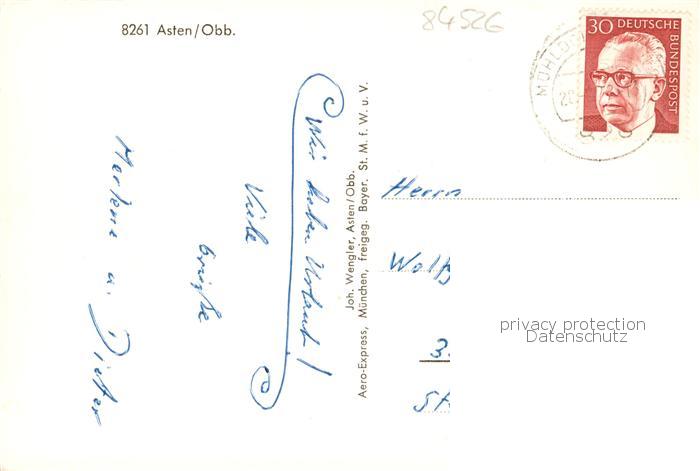 8261 Asten/Obb.
84526
30 DEUTSCHE
BUNDESPOST
MÜHLDO
Wir haben Urlaub!
Viele
Grüße
Marlene u. Dieter
Joh. Wengler, Asten/Obb.
Aero-Express, München, freigeg. Bayer. St. M. f. W. u. V.
Herrn
Wolf
3.
St
privacy protection
Datenschutz